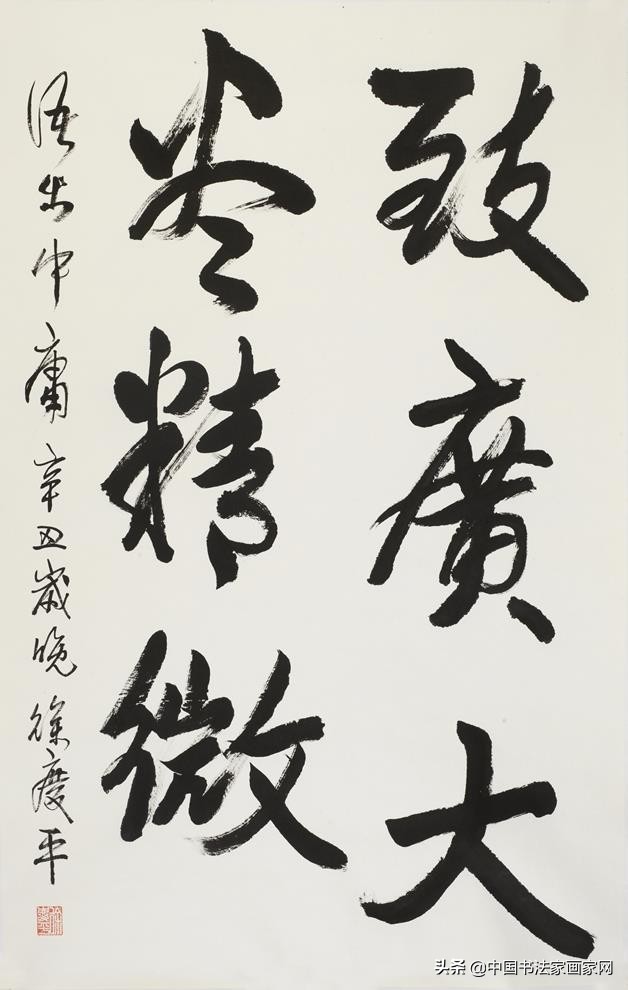 致廣大
尽精微
语出中庸辛丑歲晚徐庆平
头条 @中国书法家画家网